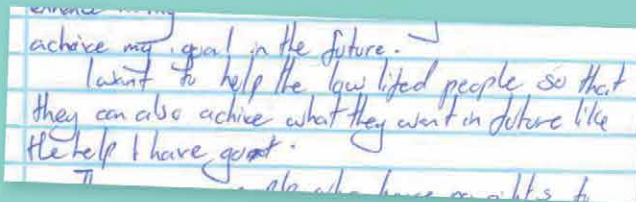 achoive my goal in the future.
I want to help the low lifed people so that
they can also achive what they want in future like
the help I have got.
people who have no rights to